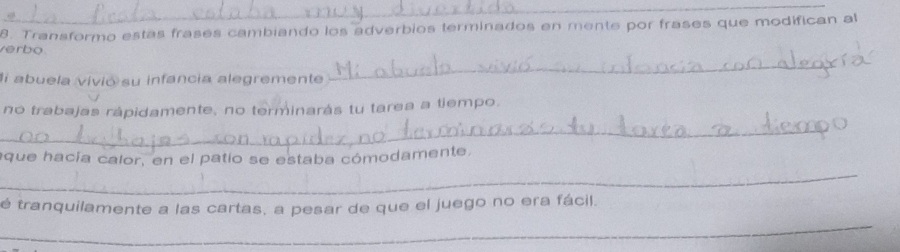 La fiesta estaba muy divertida
8. Transformo estas frases cambiando los adverbios terminados en mente por frases que modifican al
verbo
Mi abuela vivió su infancia alegremente Mi abuela vivió su infancia con alegría
no trabajas rápidamente, no terminarás tu tarea a tiempo.
no trabajas con rapidez, no terminarás tu tarea a tiempo
que hacía calor, en el patio se estaba cómodamente.
é tranquilamente a las cartas, a pesar de que el juego no era fácil.